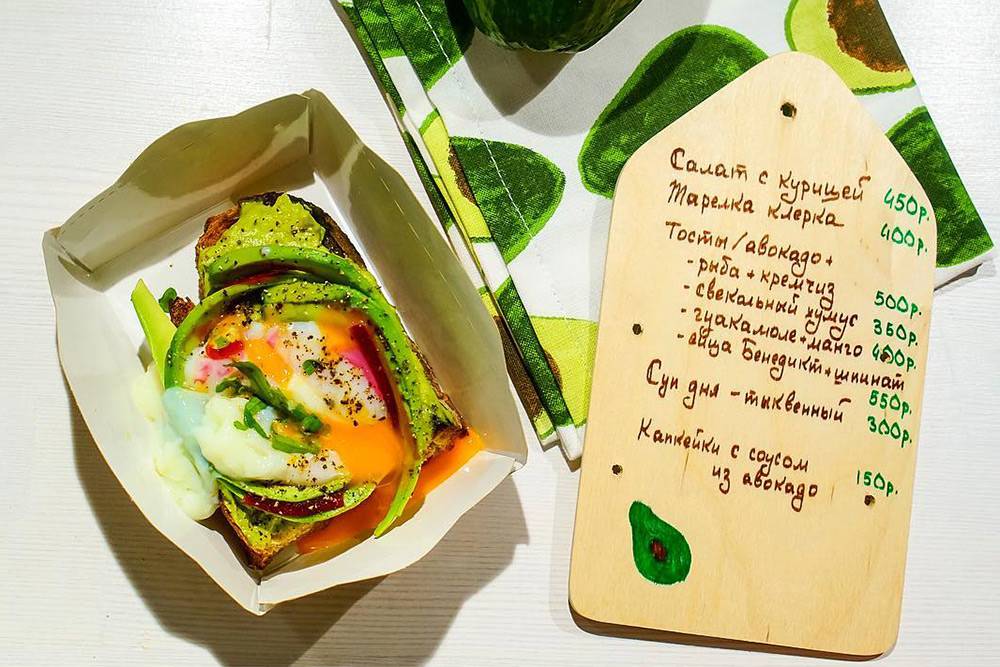 Салат с курицей 450р.
Тарелка клерка 400р.
Тосты/авокадо+
-рыба+кремчиз 500р.
-свекальный хумус 350р.
-гуакамоле+манго 400р.
-яйца Бенедикт+шпинат 550р.
Суп дня - тыквенный 300р.
Капкейки с соусом
из авокадо 150р.